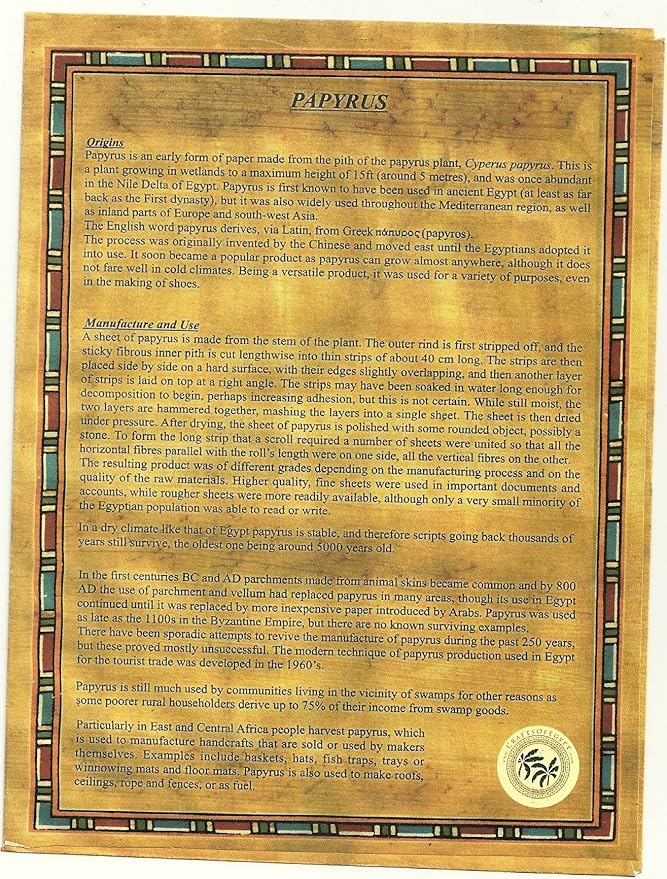 PAPYRUS
Origins
Papyrus is an early form of paper made from the pith of the papyrus plant, Cyperus papyrus. This is
a plant growing in wetlands to a maximum height of 15ft (around 5 metres), and was once abundant
in the Nile Delta of Egypt. Papyrus is first known to have been used in ancient Egypt (at least as far
back as the First dynasty), but it was also widely used throughout the Mediterranean region, as well
as inland parts of Europe and south-west Asia.
The English word papyrus derives, via Latin, from Greek πάπυρος (papyros).
The process was originally invented by the Chinese and moved east until the Egyptians adopted it
into use. It soon became a popular product as papyrus can grow almost anywhere, although it does
not fare well in cold climates. Being a versatile product, it was used for a variety of purposes, even
in the making of shoes.
Manufacture and Use
A sheet of papyrus is made from the stem of the plant. The outer rind is first stripped off, and the
sticky fibrous inner pith is cut lengthwise into thin strips of about 40 cm long. The strips are then
placed side by side on a hard surface, with their edges slightly overlapping, and then another layer
of strips is laid on top at a right angle. The strips may have been soaked in water long enough for
decomposition to begin, perhaps increasing adhesion, but this is not certain. While still moist, the
two layers are hammered together, mashing the layers into a single sheet. The sheet is then dried
under pressure. After drying, the sheet of papyrus is polished with some rounded object, possibly a
stone. To form the long strip that a scroll required a number of sheets were united so that all the
horizontal fibres parallel with the roll's length were on one side, all the vertical fibres on the other.
The resulting product was of different grades depending on the manufacturing process and on the
quality of the raw materials. Higher quality, fine sheets were used in important documents and
accounts, while rougher sheets were more readily available, although only a very small minority of
the Egyptian population was able to read or write.
In a dry climate like that of Egypt papyrus is stable, and therefore scripts going back thousands of
years still survive, the oldest one being around 5000 years old.
In the first centuries BC and AD parchments made from animal skins became common and by 800
AD the use of parchment and vellum had replaced papyrus in many areas, though its use in Egypt
continued until it was replaced by more inexpensive paper introduced by Arabs. Papyrus was used
as late as the 1100s in the Byzantine Empire, but there are no known surviving examples.
There have been sporadic attempts to revive the manufacture of papyrus during the past 250 years,
but these proved mostly unsuccessful. The modern technique of papyrus production used in Egypt
for the tourist trade was developed in the 1960's.
Papyrus is still much used by communities living in the vicinity of swamps for other reasons as
some poorer rural householders derive up to 75% of their income from swamp goods.
Particularly in East and Central Africa people harvest papyrus, which
is used to manufacture handcrafts that are sold or used by makers
themselves. Examples include baskets, hats, fish traps, trays or
winnowing mats and floor mats. Papyrus is also used to make roofs,
ceilings, rope and fences, or as fuel.
CRAFTSOFEGYPT